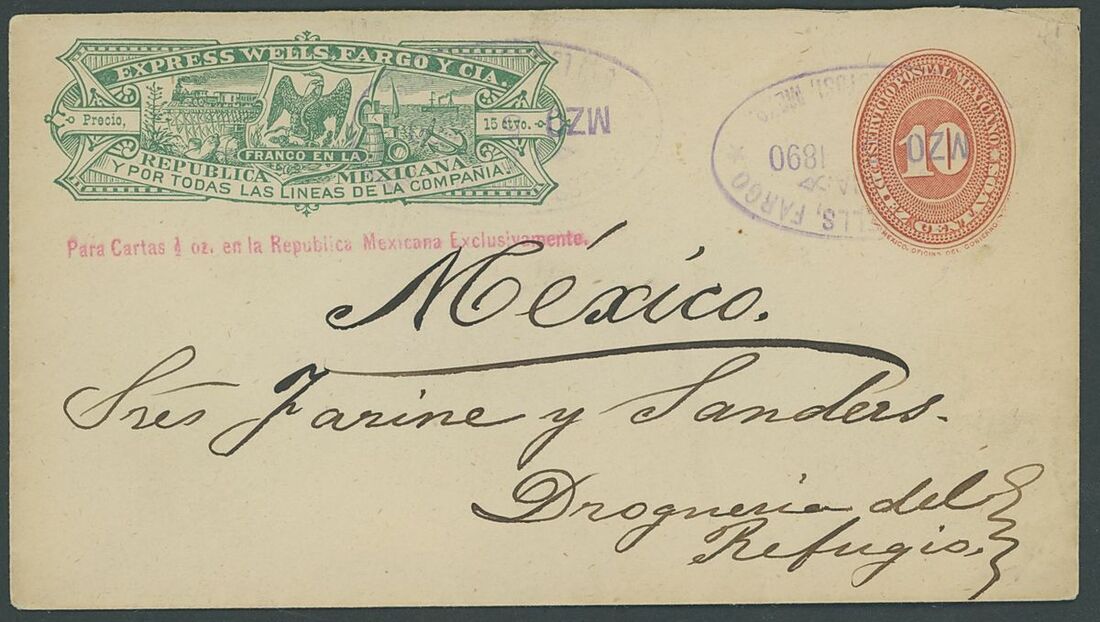 EXPRESS WELLS, FARGO Y CIA.
Precio, 15 ctvo.
FRANCO EN LA
REPUBLICA MEXICANA
Y POR TODAS LAS LINEAS DE LA COMPAÑIA.
Para Cartas ½ oz. en la Republica Mexicana Exclusivamente.
MZO
MZO
1890
WELLS, FARGO
SERVICIO POSTAL MEXICANO
10
DIEZ CENTAVOS
MEXICO, OFICINA DEL GOBIERNO
México.
Sres Farine y Sanders.
Drogueria del
Refugio.